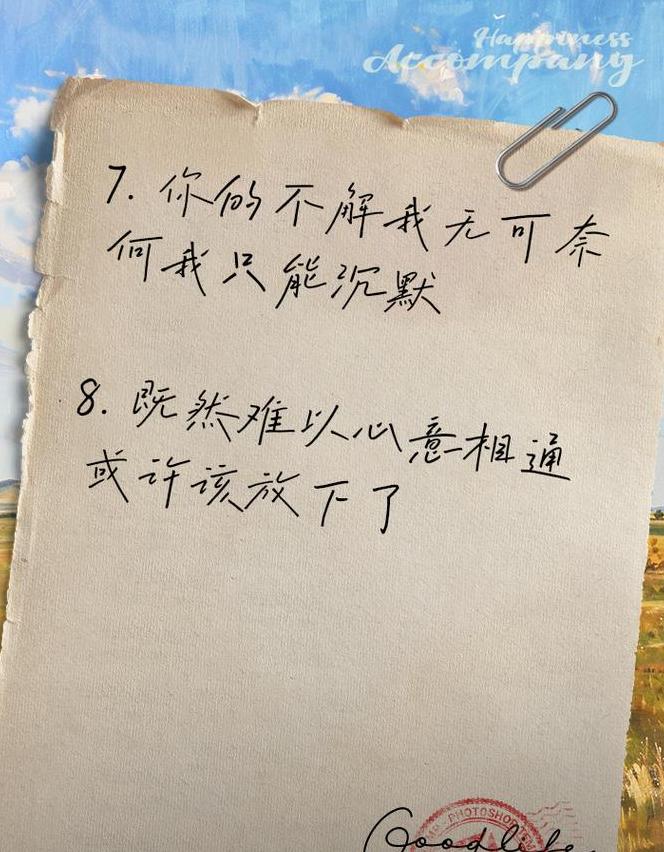 Happiness
Accompany
7. 你的不解我无可奈
何我只能沉默
8. 既然难以心意相通
或许该放下了
PHOTOSHOP
Good